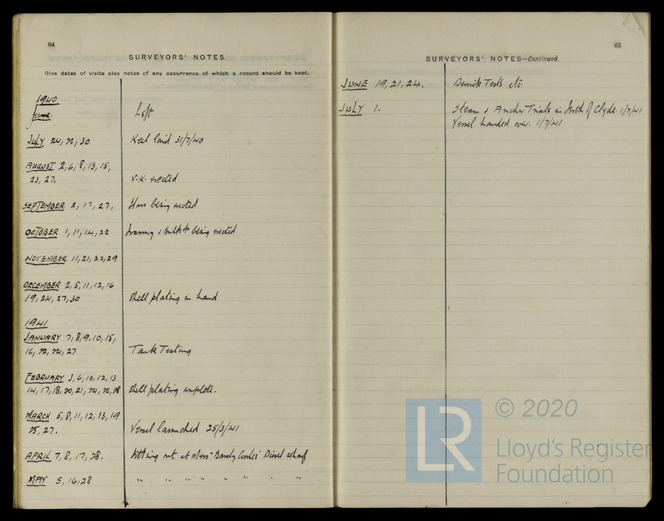 64
SURVEYORS' NOTES.
Give dates of visits also notes of any occurrence of which a record should be kept.
1940
June. Loft
JULY 24, 26, 30 Keel laid 31/7/40
AUGUST 2, 6, 8, 13, 15,
23, 27. V.K. erected
SEPTEMBER 2, 17, 27, being erected
OCTOBER 1, 11, 14, 22 Framing & bulk^ds being erected
NOVEMBER 11, 21, 22, 29
DECEMBER 2, 5, 11, 12, 16
19, 24, 27, 30 Shell plating in hand
1941
JANUARY 7, 8, 9, 10, 15,
16, 22, 24, 27 Tank Testing
FEBRUARY 3, 6, 10, 12, 13
14, 17, 18, 20, 21, 24, 26, 28 Shell plating
MARCH 5, 8, 11, 12, 13, 19
25, 27. Vessel launched 25/3/41
APRIL 7, 8, 17, 28. fitting out at Mess^rs Barclay Curle's
MAY 5, 16, 28 " " " " " " "
65
SURVEYORS' NOTES—Continued.
JUNE 19, 21, 24. Derrick Tests etc.
JULY 1. Steam & Anchor Trials in Firth of Clyde 1/7/41
Vessel handed over. 1/7/41
LR
© 2020
Lloyd's Register
Foundation